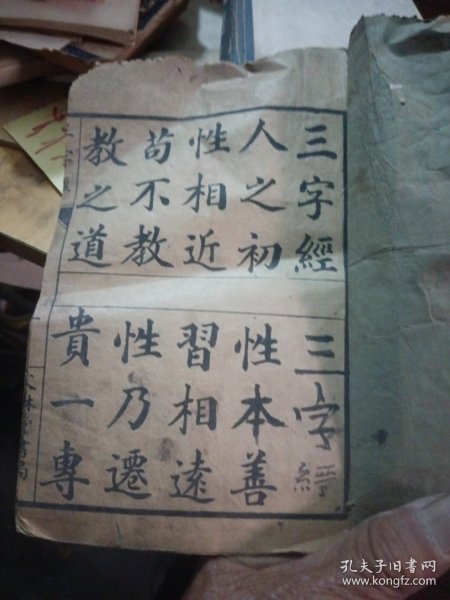 三字經 三字經
人之初 性本善
性相近 習相遠
苟不教 性乃遷
教之道 貴一專
孔夫子旧书网
www.kongfz.com